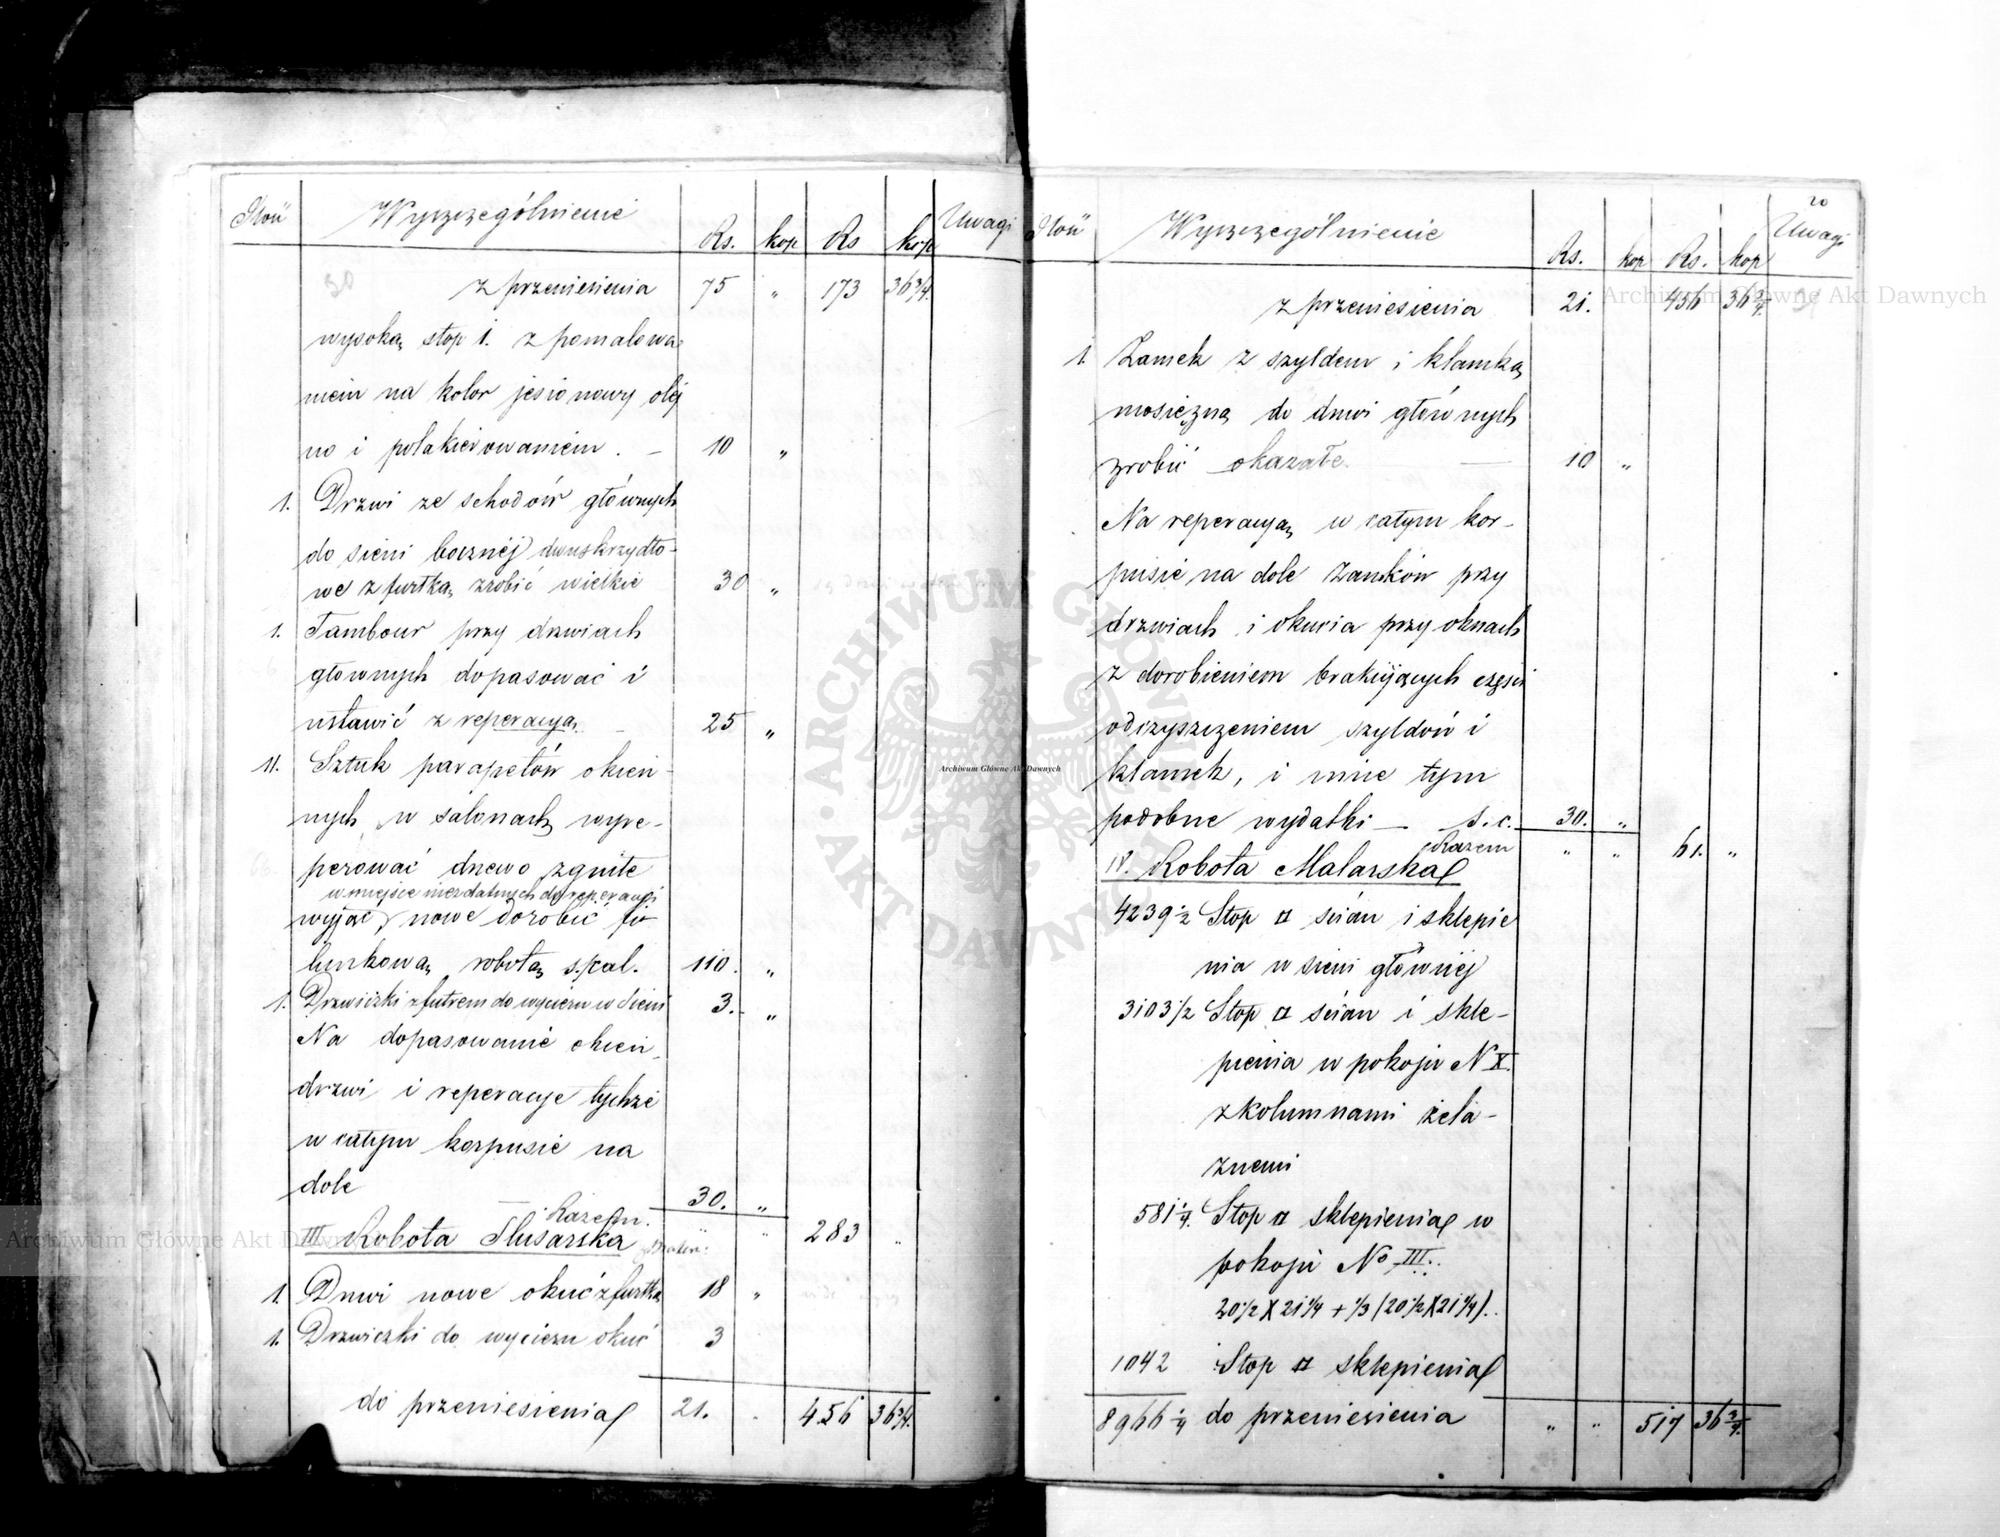 Ilość Wyszczególnienie Rs. kop Rs kop Uwagi
z przeniesienia 75 " 173 36¾.
wysoką stop 1. z pomalowa-
niem na kolor jesionowy olej
no i polakierowaniem. — 10 "
1. Drzwi ze schodów głównych
do sieni bocznéj dwuskrzydło-
we z furtką zrobić wielkie 30 "
1. Tambour przy drzwiach
głównych dopasować i
ustawić z reperacyą. — 25 "
11. Sztuk parapetów okien-
nych w salonach wyre-
perować drzewo zgniłe
w miejsce niezdatnych do reperacyi
wyjąć, nowe dorobić fo-
lunkową robotą s.pal. 110. "
1. Drzwiczki z futrem do wyciezu w Sieni 3. "
Na dopasowanie okien,
drzwi i reperacyę tychże
w całym korpusie na
dole 30. "
Razem. " " 283 "
III Robota Ślusarska
1. Drzwi nowe okuć z furtką 18 "
1. Drzwiczki do wyciezu okuć 3
do przeniesienia 21. " 456 36¾.
20
Ilość Wyszczególnienie Rs. kop Rs. kop Uwagi
z przeniesienia 21. 456 36¾.
1. Zamek z szyldem i klamką
mosiężną do drzwi głównych
zrobić okazałe. — 10 "
Na reperacyą w całym kor-
pusie na dole zamków przy
drzwiach i okucia przy oknach
z dorobieniem brakujących części
odczyszczeniem szyldów i
klamek, i inne tym
podobne wydatki — s.c. 30. "
Razem " " 61. "
IV. Robota Malarska
4239½ Stop □ ścian i sklepie
nia w sieni głównéj
3103½ Stop □ ścian i skle-
pienia w pokoju N X.
z kolumnami żela-
znemi
581¼. Stop □ sklepienia w
pokoju No III.
20½ X 21¼ + ⅓ (20½ X 21¼).
1042 Stop □ sklepienia
8966¼ do przeniesienia " " 517 36¾.
Archiwum Główne Akt Dawnych
Archiwum Główne Akt Dawnych
Archiwum Główne Akt Dawnych
ARCHIWUM GŁÓWNE AKT DAWNYCH